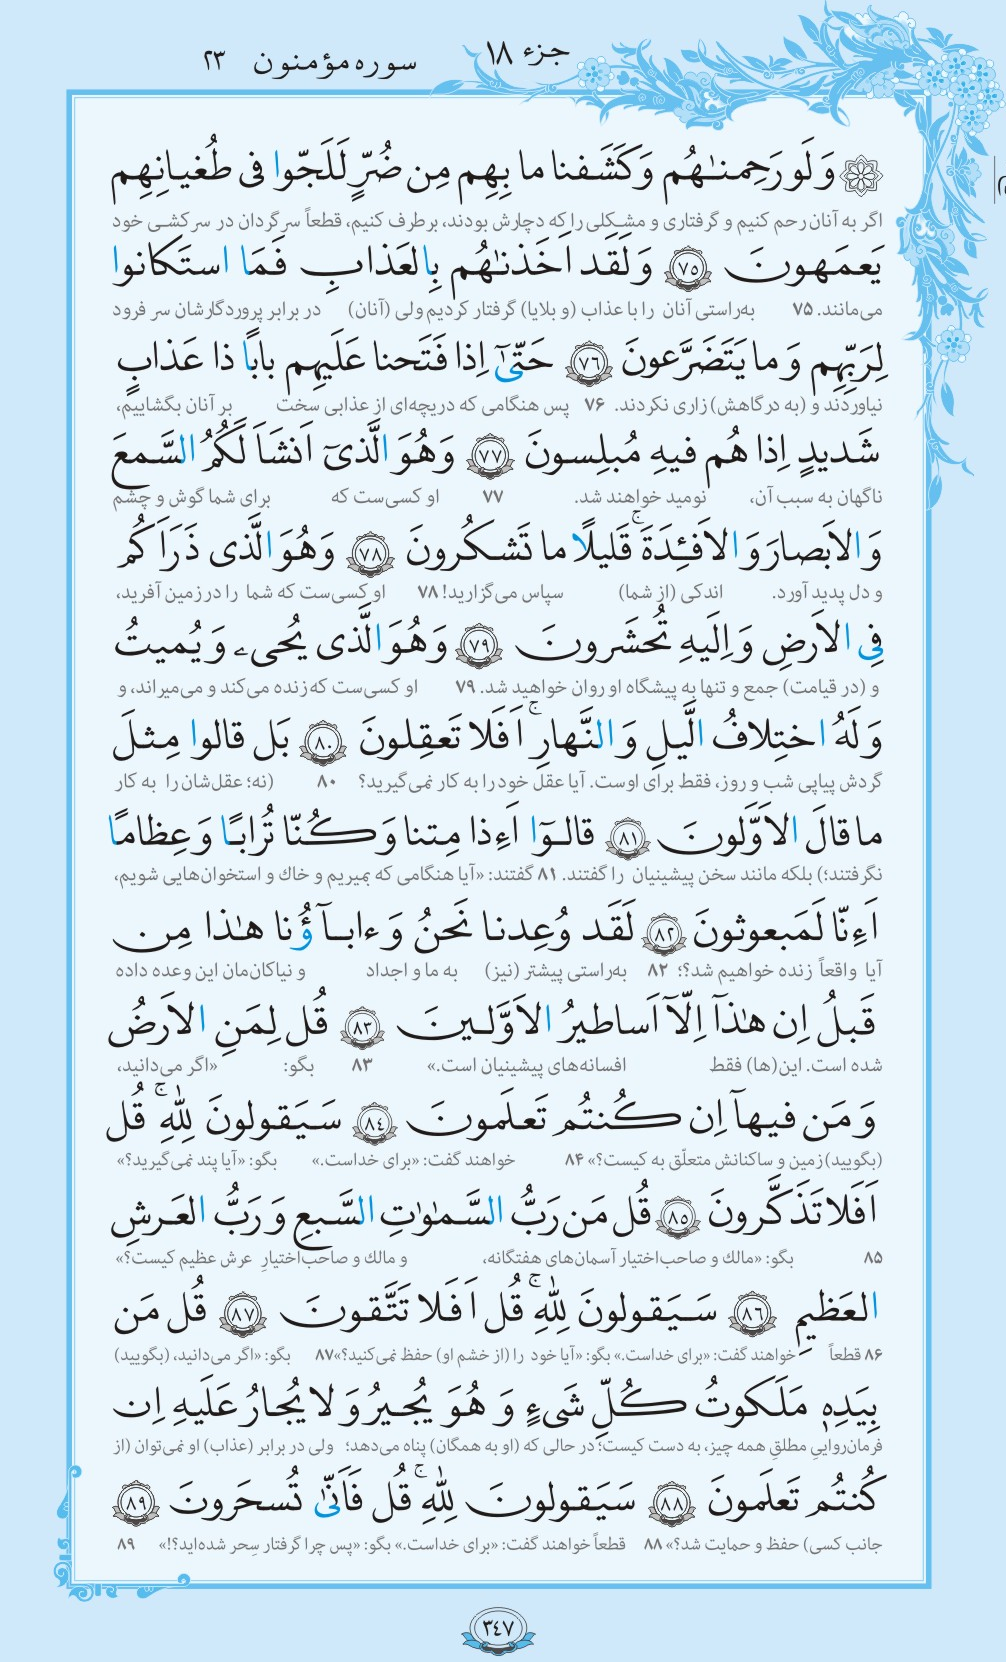 جزء ۱۸
سوره مؤمنون ۲۳
۞ وَلَو رَحِمنٰهُم وَكَشَفنا ما بِهِم مِن ضُرٍّ لَلَجّوا فى طُغيانِهِم
اگر به آنان رحم كنيم و گرفتارى و مشكلى را كه دچارش بودند، برطرف كنيم، قطعاً سرگردان در سركشى خود
يَعمَهونَ ٧٥ وَلَقَد اَخَذنٰهُم بِالعَذابِ فَمَا استَكانوا
مى‌مانند. ۷۵ به‌راستى آنان را با عذاب (و بلايا) گرفتار كرديم ولى (آنان) در برابر پروردگارشان سر فرود
لِرَبِّهِم وَ ما يَتَضَرَّعونَ ٧٦ حَتّىٰٓ اِذا فَتَحنا عَلَيهِم بابًا ذا عَذابٍ
نياوردند و (به درگاهش) زارى نكردند. ۷۶ پس هنگامى كه دريچه‌اى از عذابى سخت بر آنان بگشاييم،
شَديدٍ اِذا هُم فيهِ مُبلِسونَ ٧٧ وَهُوَ الَّذىٓ اَنشَاَ لَكُمُ السَّمعَ
ناگهان به سبب آن، نوميد خواهند شد. ۷۷ او كسى‌ست كه براى شما گوش و چشم
وَ الاَبصارَ وَ الاَفـِٔدَةَ ۚ قَليلًا ما تَشكُرونَ ٧٨ وَهُوَ الَّذى ذَرَاَكُم
و دل پديد آورد. اندكى (از شما) سپاس مى‌گزاريد! ۷۸ او كسى‌ست كه شما را در زمين آفريد،
فِى الاَرضِ وَ اِلَيهِ تُحشَرونَ ٧٩ وَهُوَ الَّذى يُحىۦ وَ يُميتُ
و (در قيامت) جمع و تنها به پيشگاه او روان خواهيد شد. ۷۹ او كسى‌ست كه زنده مى‌كند و مى‌ميراند، و
وَ لَهُ اختِلافُ الَّيلِ وَ النَّهارِ ۚ اَفَلا تَعقِلونَ ٨٠ بَل قالوا مِثلَ
گردش پياپى شب و روز، فقط براى اوست. آيا عقل خود را به كار نمى‌گيريد؟ ۸۰ (نه؛ عقل‌شان را به كار
ما قالَ الاَوَّلونَ ٨١ قالـوٓا اَءِذا مِتنا وَ كُنّا تُرابًا وَ عِظامًا
نگرفتند؛) بلكه مانند سخن پيشينيان را گفتند. ۸۱ گفتند: «آيا هنگامى كه بميريم و خاك و استخوان‌هايى شويم،
اَءِنّا لَمَبعوثونَ ٨٢ لَقَد وُعِدنا نَحنُ وَ ءابآؤُنا هٰذا مِن
آيا واقعاً زنده خواهيم شد؟؛ ۸۲ به‌راستى پيشتر (نيز) به ما و اجداد و نياكان‌مان اين وعده داده
قَبلُ اِن هٰذآ اِلّآ اَساطيرُ الاَوَّلـينَ ٨٣ قُل لِمَنِ الاَرضُ
شده است. اين(ها) فقط افسانه‌هاى پيشينيان است.» ۸۳ بگو: «اگر مى‌دانيد،
وَ مَن فيهآ اِن كُنتُم تَعلَمونَ ٨٤ سَيَقولونَ لِلّٰهِ ۚ قُل
(بگوييد) زمين و ساكنانش متعلّق به كيست؟» ۸۴ خواهند گفت: «براى خداست.» بگو: «آيا پند نمى‌گيريد؟»
اَفَلا تَذَكَّرونَ ٨٥ قُل مَن رَبُّ السَّمٰوٰتِ السَّبعِ وَ رَبُّ العَرشِ
۸۵ بگو: «مالك و صاحب‌اختيار آسمان‌هاى هفتگانه، و مالك و صاحب‌اختيارِ عرش عظيم كيست؟»
العَظيمِ ٨٦ سَـيَقولونَ لِلّٰهِ ۚ قُل اَفَلا تَتَّقونَ ٨٧ قُل مَن
۸۶ قطعاً خواهند گفت: «براى خداست.» بگو: «آيا خود را (از خشم او) حفظ نمى‌كنيد؟» ۸۷ بگو: «اگر مى‌دانيد، (بگوييد)
بِيَدِهٖ مَلَكوتُ كُلِّ شَىءٍ وَ هُوَ يُجيرُ وَ لا يُجارُ عَلَيهِ اِن
فرمان‌روايىِ مطلقِ همه چيز، به دست كيست؛ در حالى كه (او به همگان) پناه مى‌دهد؛ ولى در برابر (عذاب) او نمى‌توان (از
كُنتُم تَعلَمونَ ٨٨ سَيَقولونَ لِلّٰهِ ۚ قُل فَاَنّىٰ تُسحَرونَ ٨٩
جانب كسى) حفظ و حمايت شد؟» ۸۸ قطعاً خواهند گفت: «براى خداست.» بگو: «پس چرا گرفتار سِحر شده‌ايد؟!» ۸۹
٣٤٧